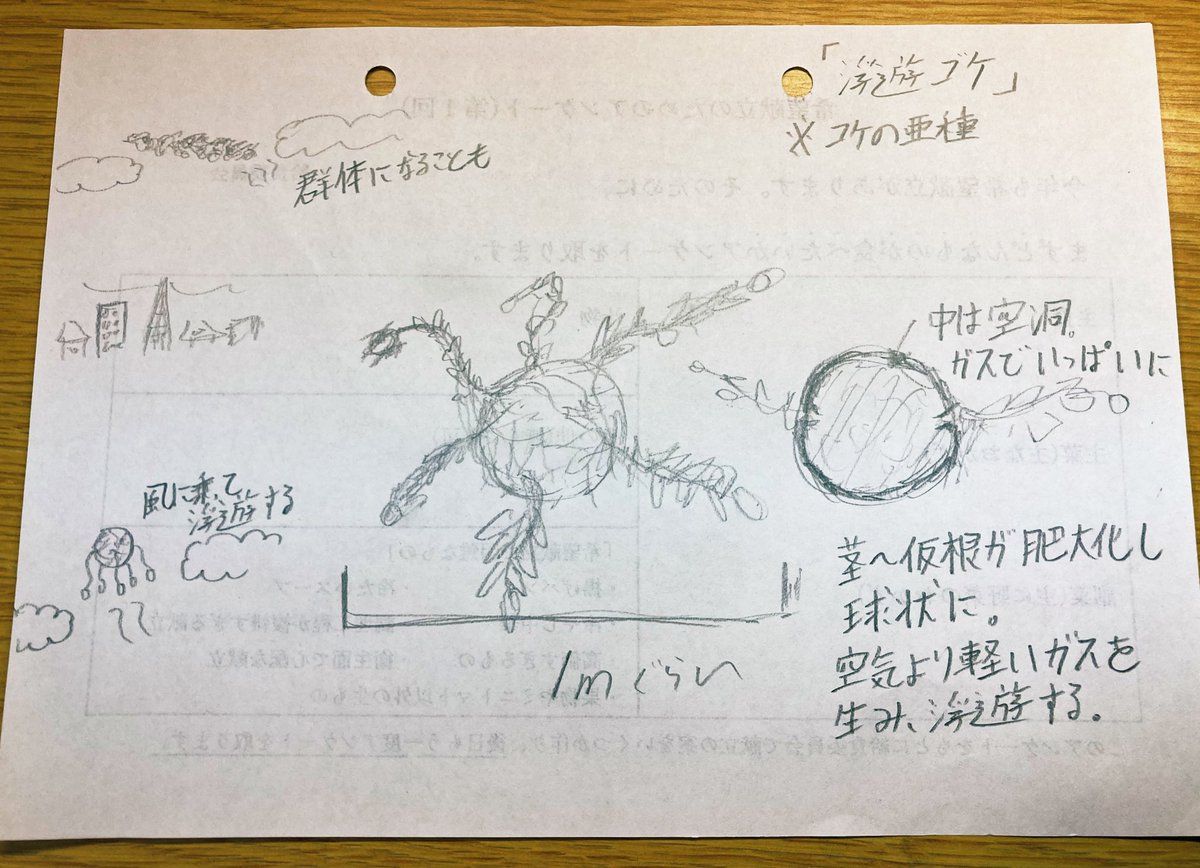 「浮遊ゴケ」
※コケの亜種
群体になることも
中は空洞。
ガスでいっぱいに
風に乗って
浮遊する
茎〜仮根が肥大化し
球状に。
空気より軽いガスを
生み、浮遊する。
1mぐらい